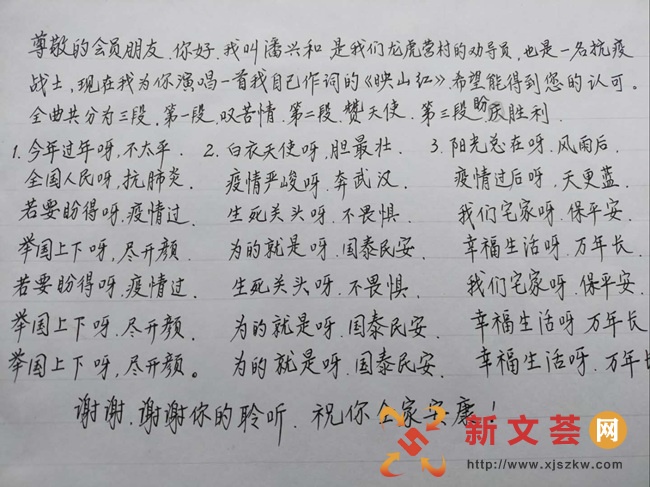 尊敬的会员朋友.你好.我叫潘兴和 是我们龙虎营村的劝导员,也是一名抗疫
战士,现在我为你演唱一首我自己作词的《映山红》希望能得到您的认可。
全曲共分为三段.第一段.叹苦情.第二段.赞天使.第三段盼庆胜利.
1. 今年过年呀,不太平. 2. 白衣天使呀,胆最壮. 3. 阳光总在呀.风雨后.
全国人民呀,抗肺炎. 疫情严峻呀.奔武汉. 疫情过后呀.天更蓝.
若要盼得呀,疫情过. 生死关头呀.不畏惧. 我们宅家呀.保平安.
举国上下呀,尽开颜. 为的就是呀.国泰民安. 幸福生活呀.万年长.
若要盼得呀,疫情过. 生死关头呀.不畏惧. 我们宅家呀.保平安.
举国上下呀.尽开颜. 为的就是呀.国泰民安. 幸福生活呀 万年长
举国上下呀,尽开颜。 为的就是呀.国泰民安. 幸福生活呀.万年长
谢谢.谢谢你的聆听.祝你全家安康!
新文荟网
http://www.xjszkw.com